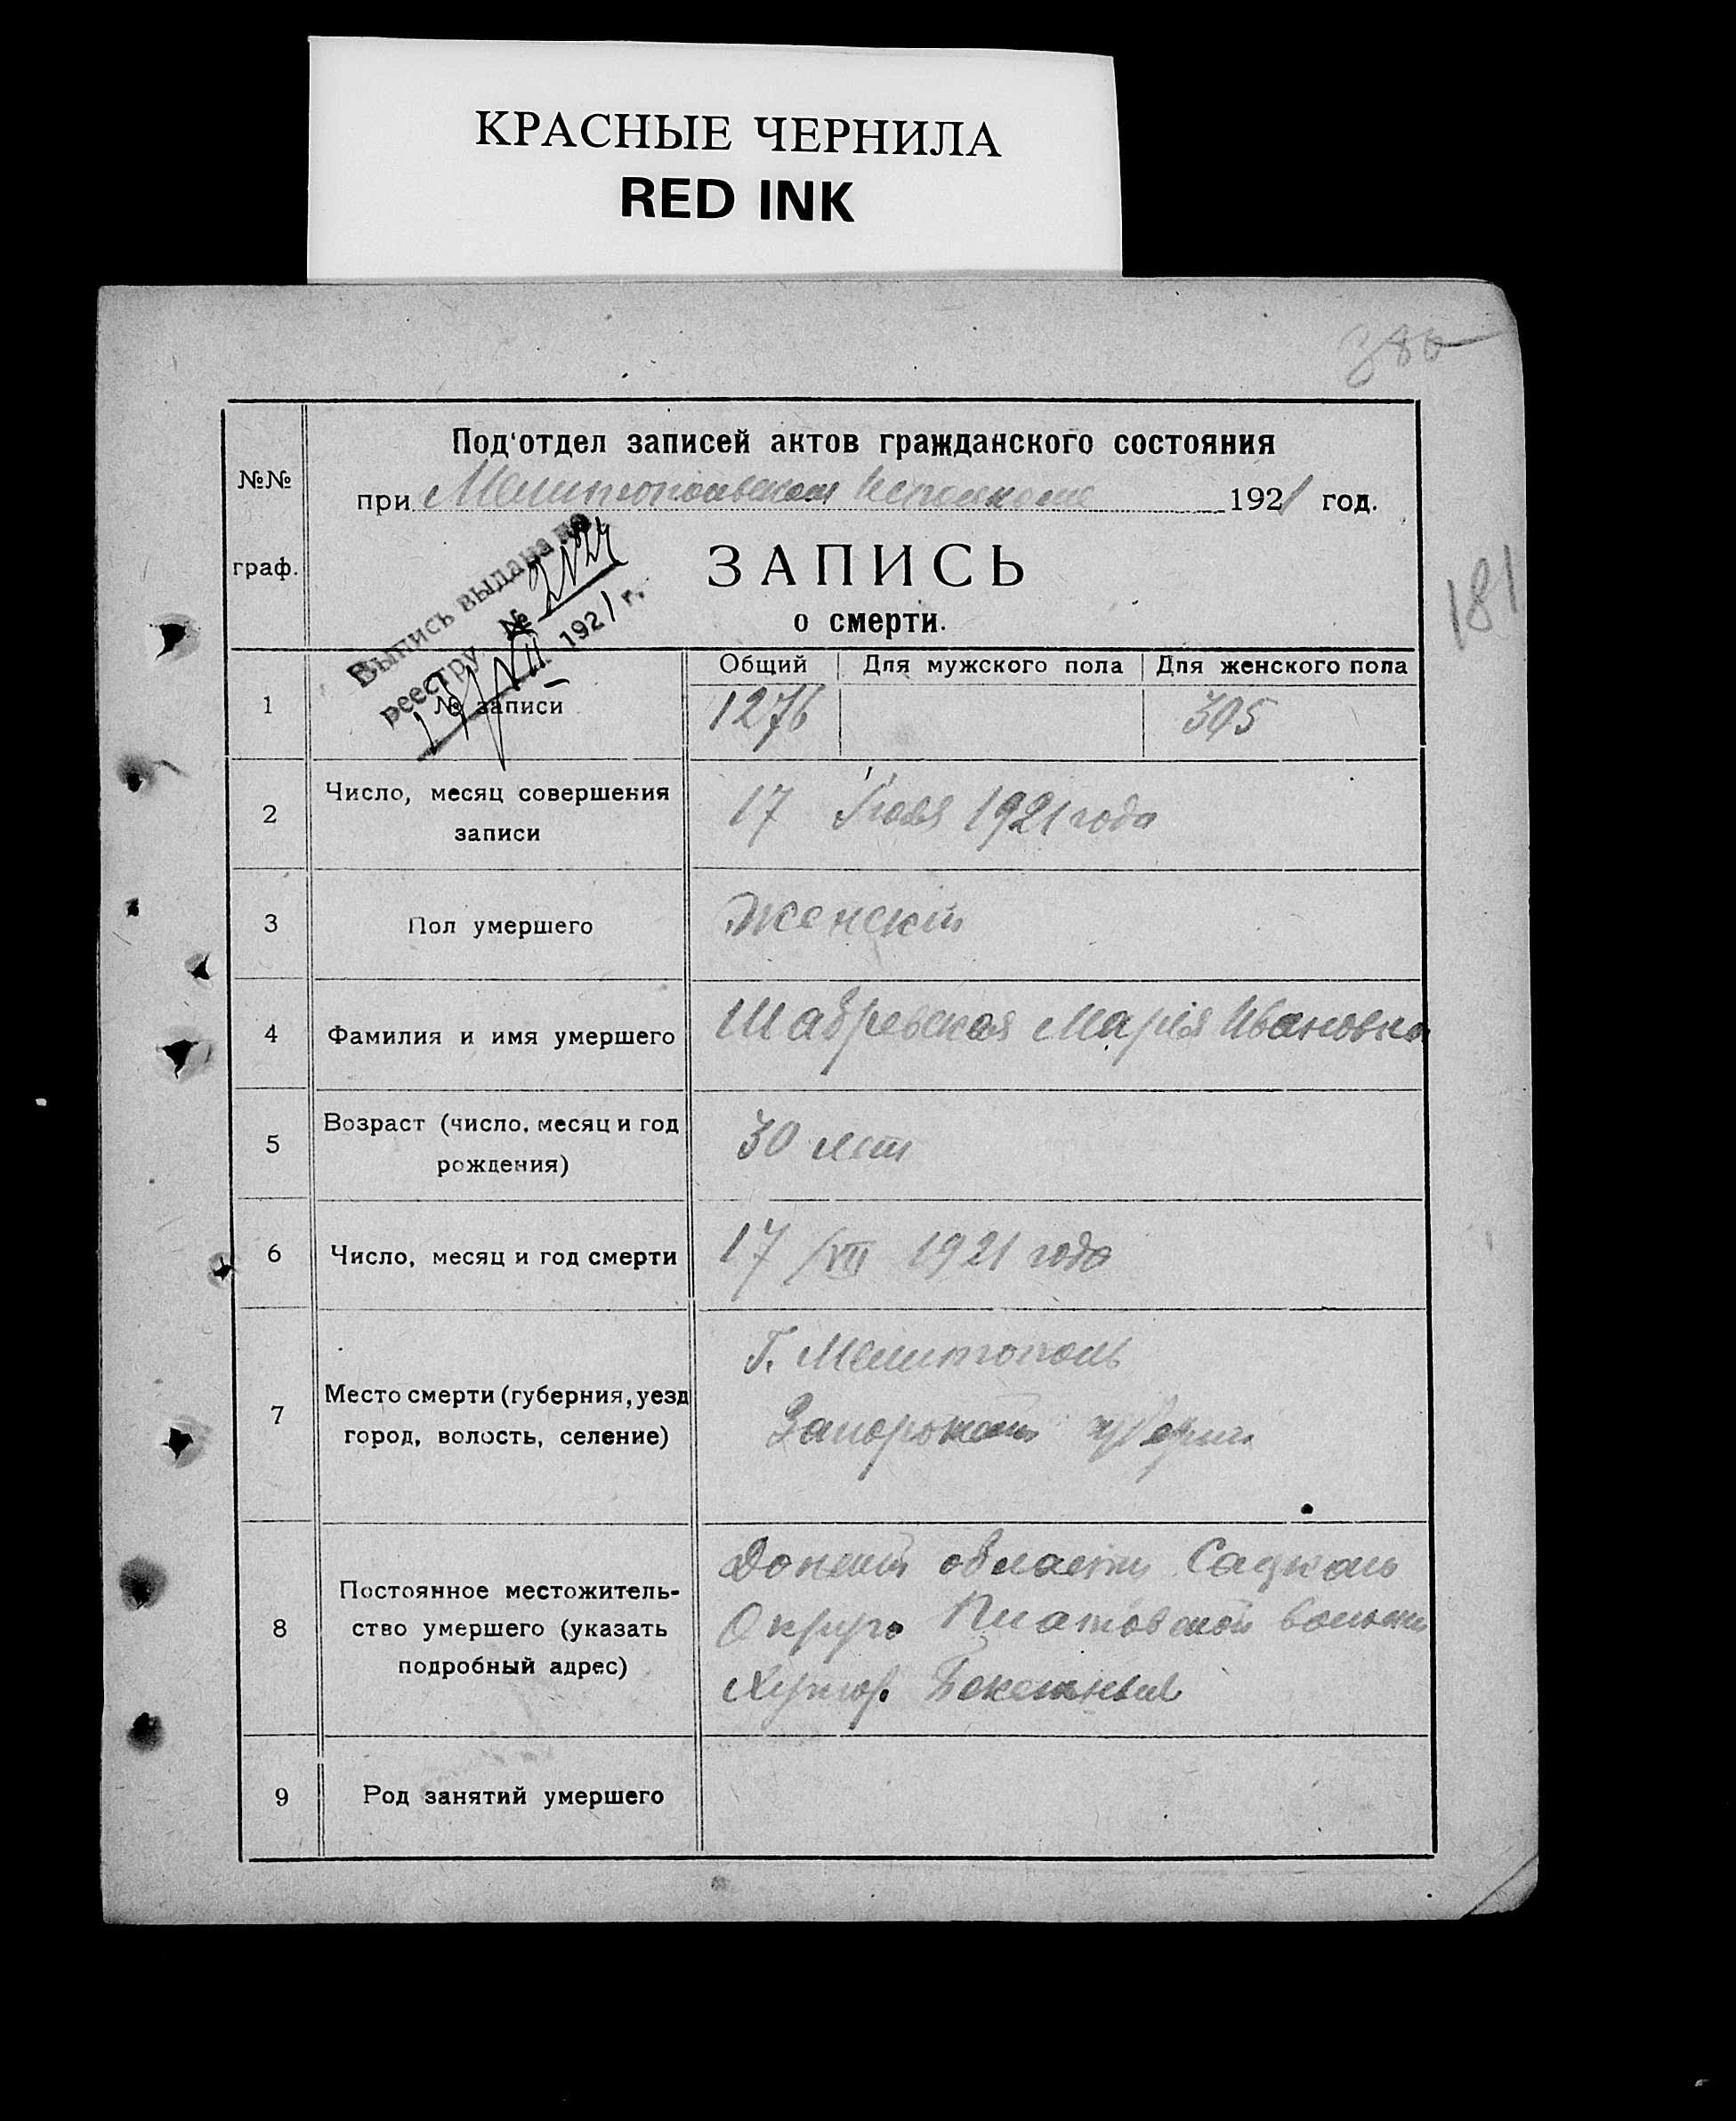 КРАСНЫЕ ЧЕРНИЛА
RED INK
380
181
Под'отдел записей актов гражданского состояния
№№
граф.
при Мелитопольском Исполкоме 1921 год.
Выпись выдана по
реестру №
1921 г.
ЗАПИСЬ
о смерти.
Общий Для мужского пола Для женского пола
1 № записи 1276 395
2 Число, месяц совершения
записи
17 Июля 1921 года
3 Пол умершего Женскій
4 Фамилия и имя умершего Шабревская Марія Ивановна
5 Возраст (число, месяц и год
рождения)
30 лет
6 Число, месяц и год смерти 17/VII 1921 года
7 Место смерти (губерния, уезд
город, волость, селение)
Г. Мелитополь
Запорожской губерни
8 Постоянное местожитель-
ство умершего (указать
подробный адрес)
Донской области
Округа волости
Хутор
9 Род занятий умершего